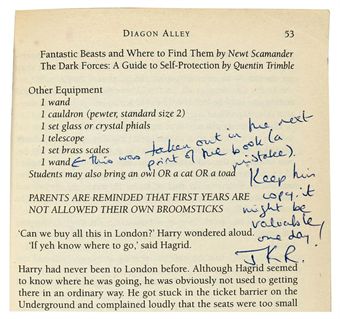 DIAGON ALLEY 53
Fantastic Beasts and Where to Find Them by Newt Scamander
The Dark Forces: A Guide to Self-Protection by Quentin Trimble
Other Equipment
1 wand
1 cauldron (pewter, standard size 2)
1 set glass or crystal phials
1 telescope
1 set brass scales
1 wand ← this was taken out in the next
print of the book (a
mistake).
Students may also bring an owl OR a cat OR a toad
Keep this
copy, it
might be
valuable
one day!
J.K.R.
PARENTS ARE REMINDED THAT FIRST YEARS ARE
NOT ALLOWED THEIR OWN BROOMSTICKS
‘Can we buy all this in London?’ Harry wondered aloud.
‘If yeh know where to go,’ said Hagrid.
Harry had never been to London before. Although Hagrid seemed
to know where he was going, he was obviously not used to getting
there in an ordinary way. He got stuck in the ticket barrier on the
Underground and complained loudly that the seats were too small